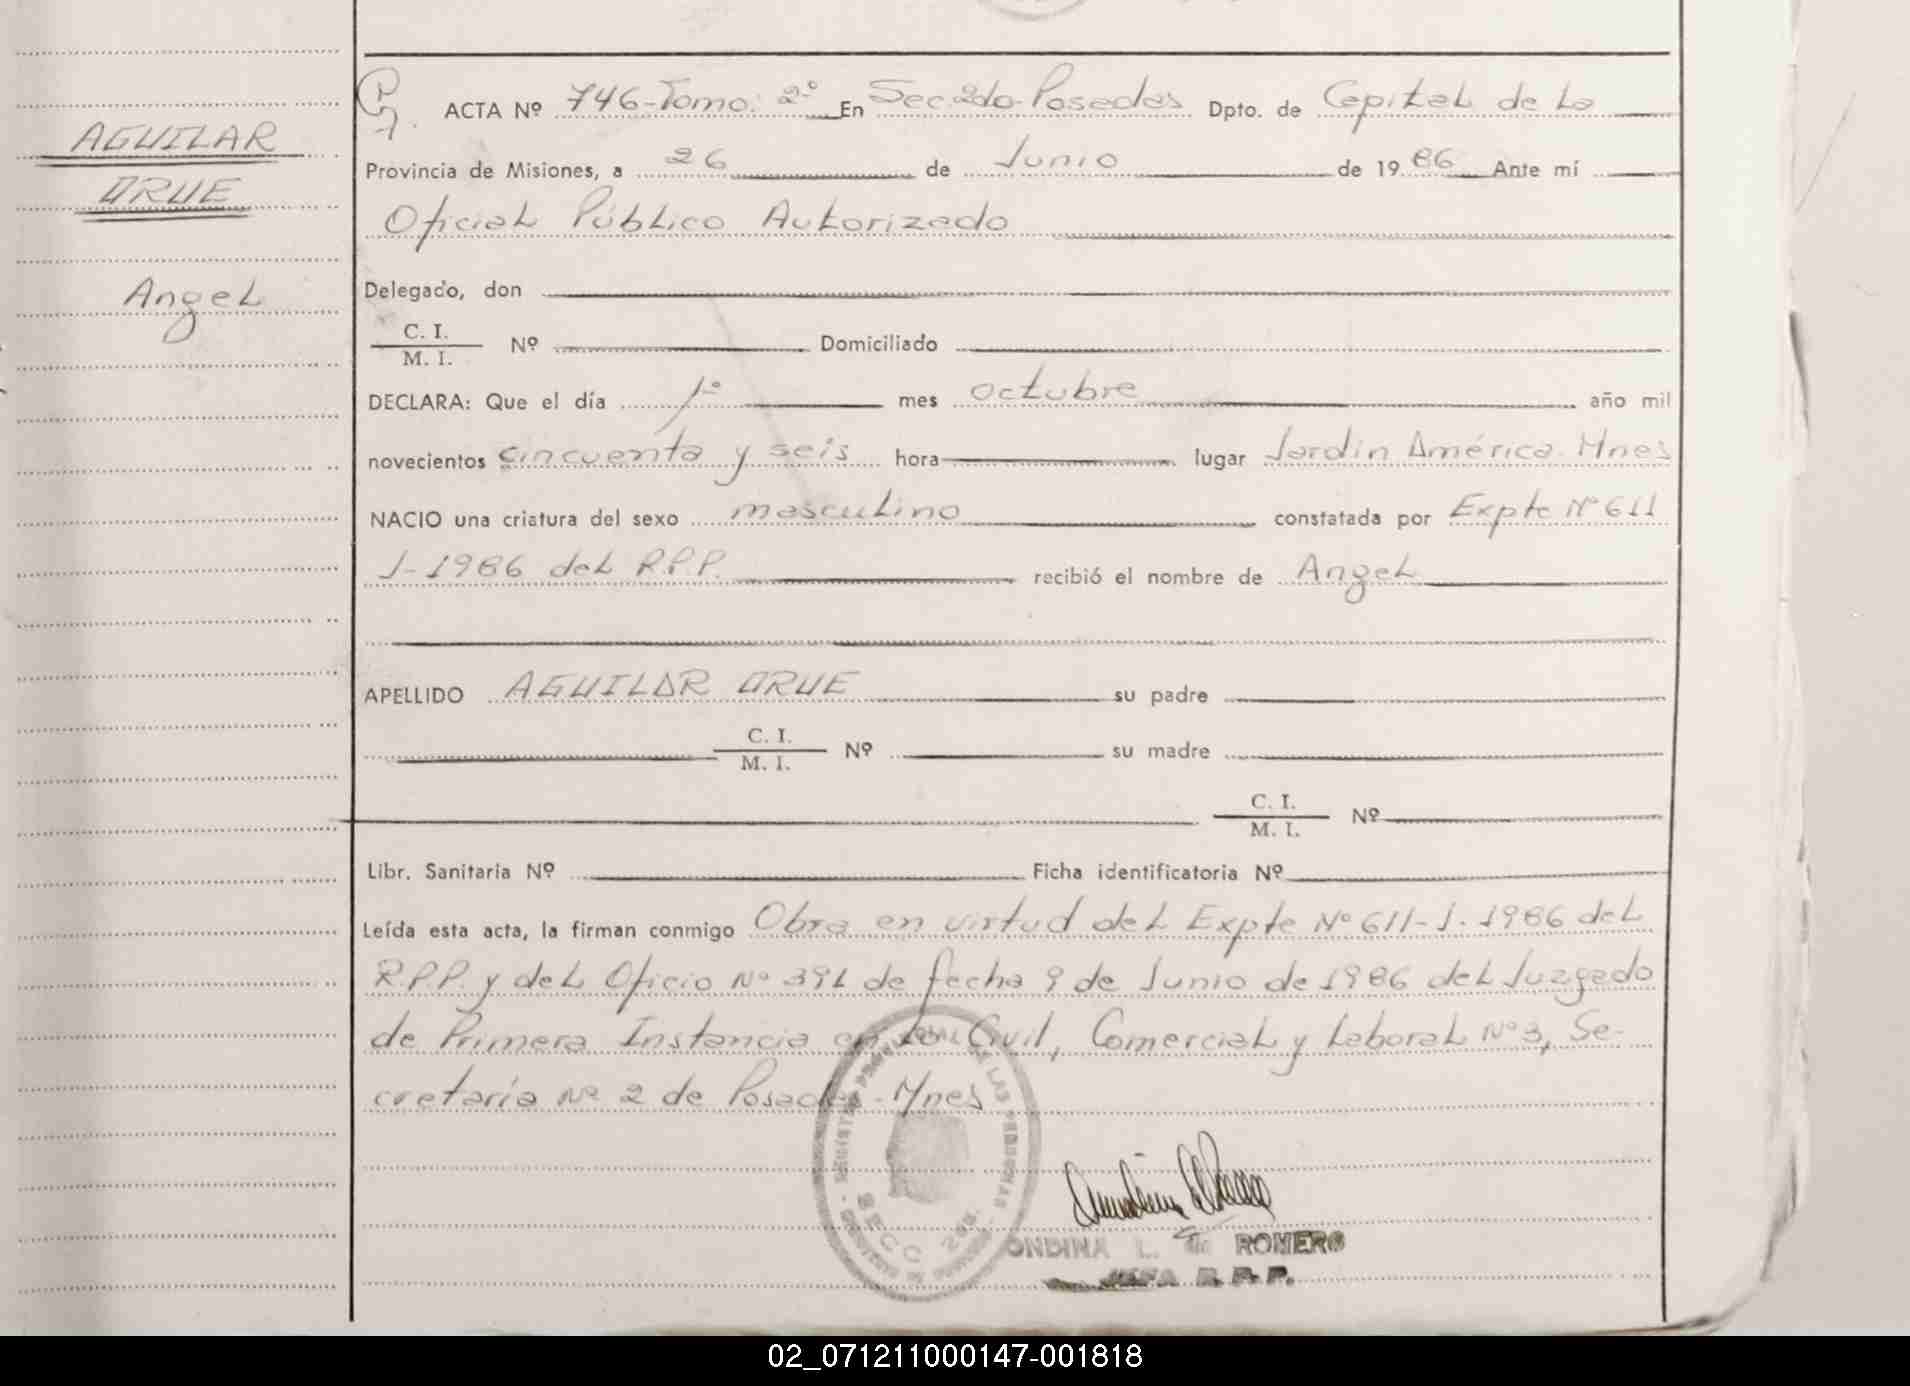 AGUILAR
ORUE
Angel
ACTA Nº 746-Tomo: 2º En Sec. 2do. Posadas Dpto. de Capital de La
Provincia de Misiones, a 26 de Junio de 1986 Ante mí
Oficial Público Autorizado
Delegado, don
C. I.
M. I. Nº Domiciliado
DECLARA: Que el día 1º mes octubre año mil
novecientos cincuenta y seis hora lugar Jardín América. Mnes
NACIO una criatura del sexo masculino constatada por Expte Nº 611
J-1986 del R.P.P. recibió el nombre de Angel
APELLIDO AGUILAR ORUE su padre
C. I.
M. I. Nº su madre
C. I.
M. I. Nº
Libr. Sanitaria Nº Ficha identificatoria Nº
Leída esta acta, la firman conmigo Obra en virtud del Expte Nº 611-J-1986 del
R.P.P. y del Oficio Nº 391 de fecha 9 de Junio de 1986 del Juzgado
de Primera Instancia en lo Civil, Comercial y Laboral Nº 3, Se-
cretaría Nº 2 de Posadas-Mnes
REGISTRO PROVINCIAL DE LAS PERSONAS
SECC 2da.
ONDINA L. de ROMERO
JEFA R. P. P.
02_071211000147-001818